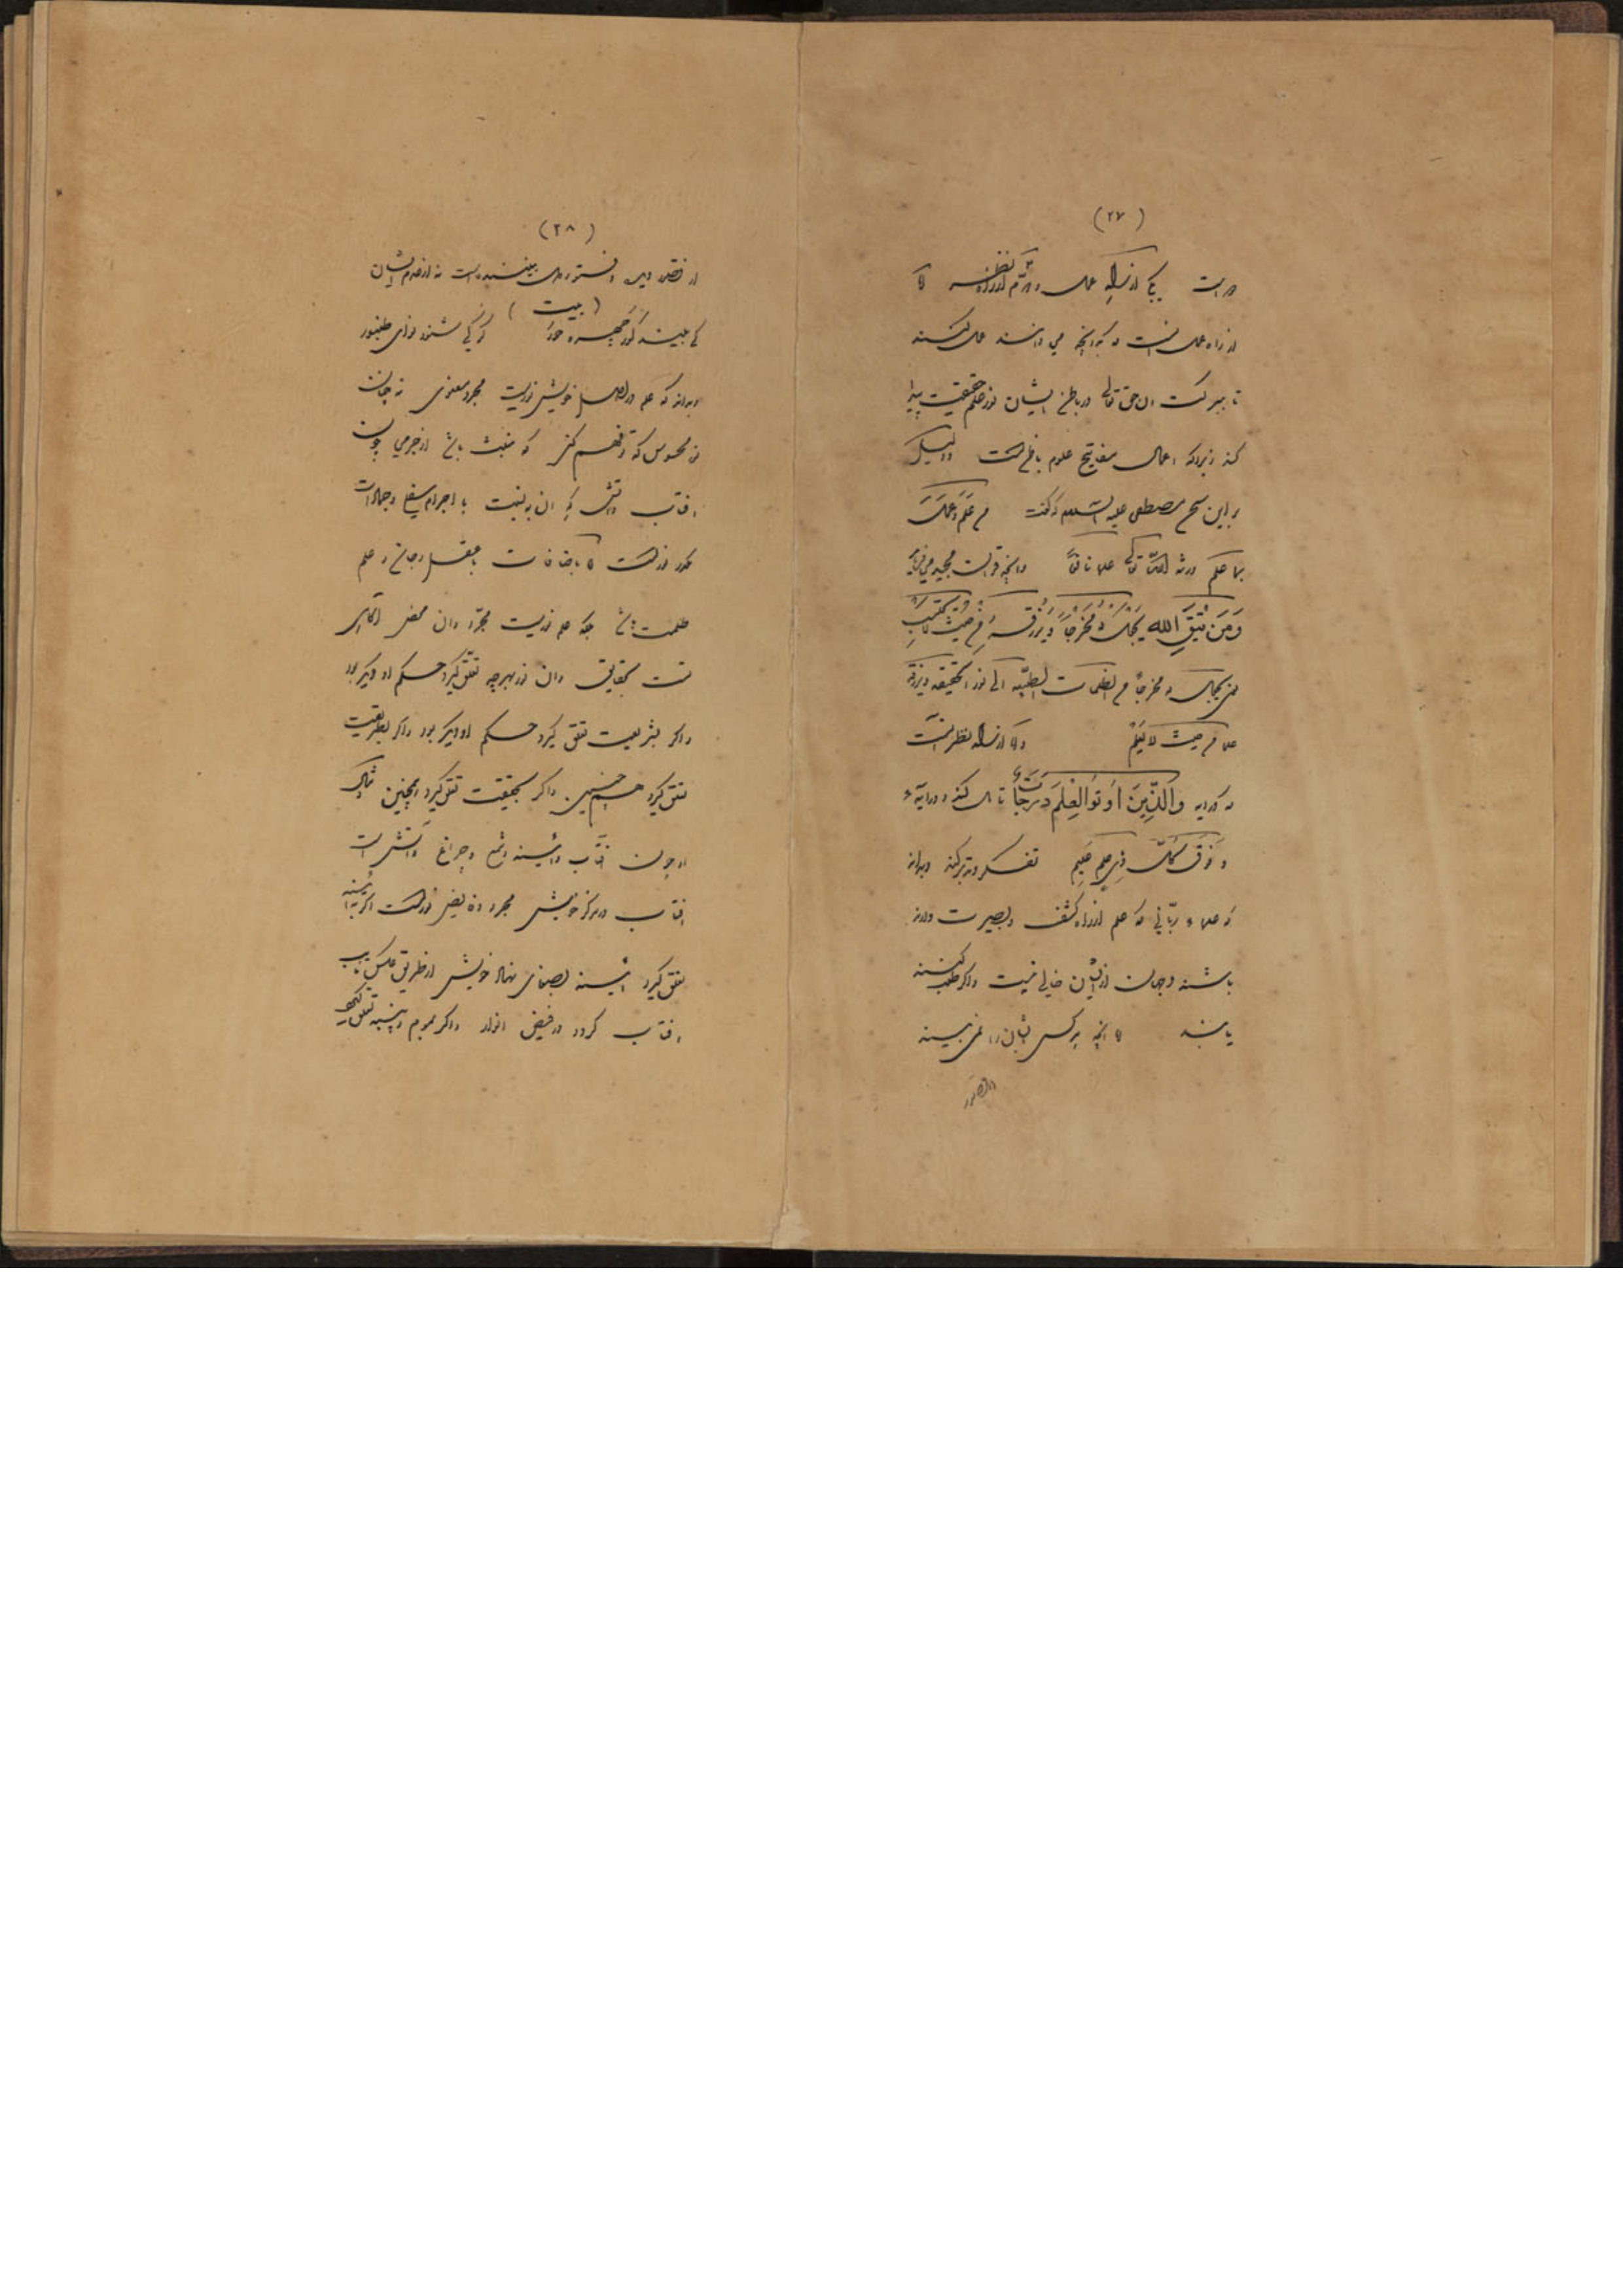 (۲۷)
در است یکی از راه عمل و دوم از راه نظر اما
از راه عمل آنست که بر آنچه می دانند عمل کنند
تا ببرکت آن حق تعالی در باطن ایشان نور علم حقیقت پیدا
کند زیرا که اعمال مفاتیح علوم باطن است و دلیل
بر این سخن مصطفی علیه السلام که گفت من علم و عمل
بما علم ورثه الله تعالی علما نافعا و آنچه قرآن مجید می فرماید
وَمَن يَتَّقِ الله يَجعَل لَهُ مَخرَجاً وَيَرزُقهُ مِن حَيثُ لا يَحتَسِب
یعنی یجعل له مخرجا من الظلمات الطبیعه الی نور الحقیقه ویرزقه
علما من حیث لا یعلم و اما از راه نظر آنست
که در آیه وَالَّذِينَ اُوتُوا العِلمَ دَرَجَات تامل کند و در آیه
وَفَوقَ كُلِّ ذِي عِلمٍ عَلِيم تفکر و تدبر کند و بداند
که علماء ربانی که علم از راه کشف و بصیرت دارند
باشند و جهان از ایشان خالی نیست و اگر طلب کنند
یابند اما آنچه هر کس ایشان را نمی بیند
از قصور
(۲۸)
از قصور دیده و مستوری بینندست نه از عدم ایشان
(بیت)
کی بیند کور چهره حور کر کی شنود نوای طنبور
و بداند که علم در اصل خویش نوریست مجرد معنوی نه چنان
نور محسوس که تو فهم کنی که منبث باشد از جرمی چون
آفتاب و آتش که آن به نسبت با اجرام سفلی و جمادات
نور است اما باضافات با عقل و جان و علم
ظلمت باشد چه علم نوریست مجرد و آن محض آگاهی
است بحقایق و آن نور بهرچه تعلق گیرد حکم او دیگر بود
و اگر بشریعت تعلق گیرد حکم او دیگر بود و اگر بطریقت
تعلق گیرد همچنین و اگر بحقیقت تعلق گیرد همچنین مثال
او چون آفتاب و آئینه و شمع و چراغ و آتش است
آفتاب در مرکز خویش مجرد و فایض نور است اگر به آئینه
تعلق گیرد آئینه بصفای نهاد خویش از طریق عکس نایب
آفتاب گردد در فیض انوار و اگر بموم و پنبه تعلق گیرد